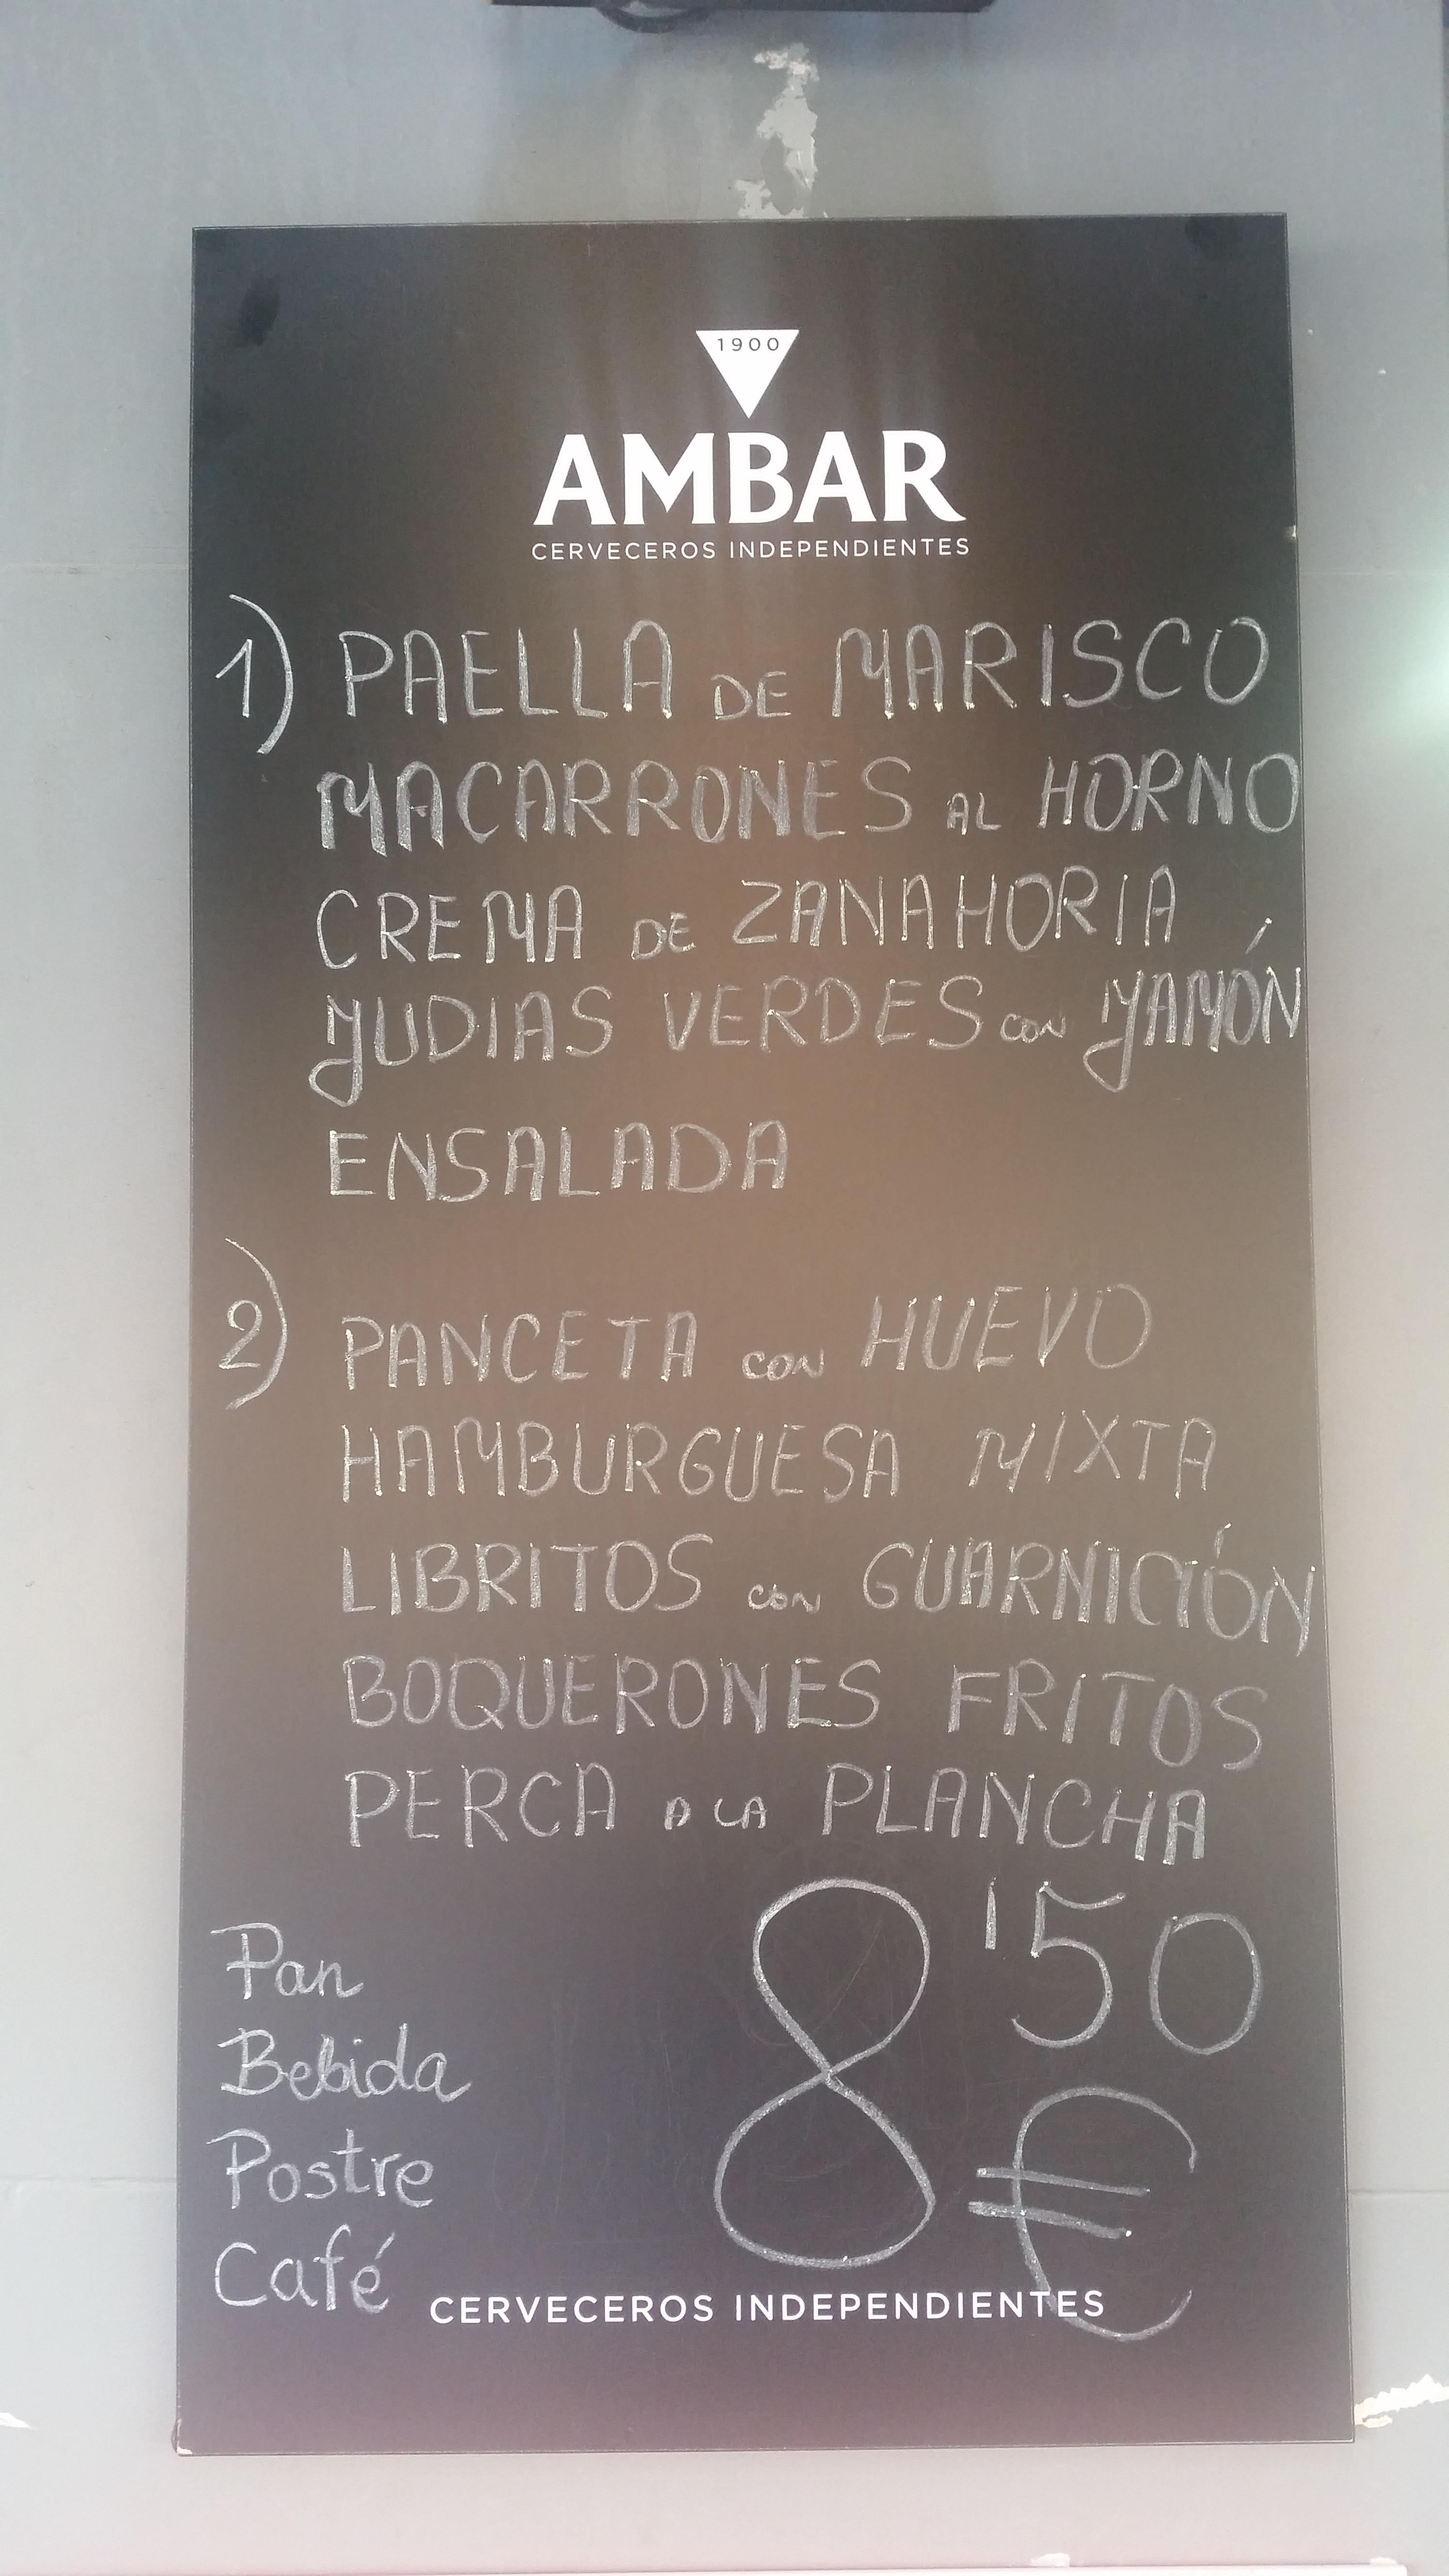 1900
AMBAR
CERVECEROS INDEPENDIENTES
1) PAELLA DE MARISCO
MACARRONES AL HORNO
CREMA DE ZANAHORIA
JUDIAS VERDES CON JAMÓN
ENSALADA
2) PANCETA CON HUEVO
HAMBURGUESA MIXTA
LIBRITOS CON GUARNICIÓN
BOQUERONES FRITOS
PERCA A LA PLANCHA
Pan
Bebida
Postre
Café
8'50 €
CERVECEROS INDEPENDIENTES